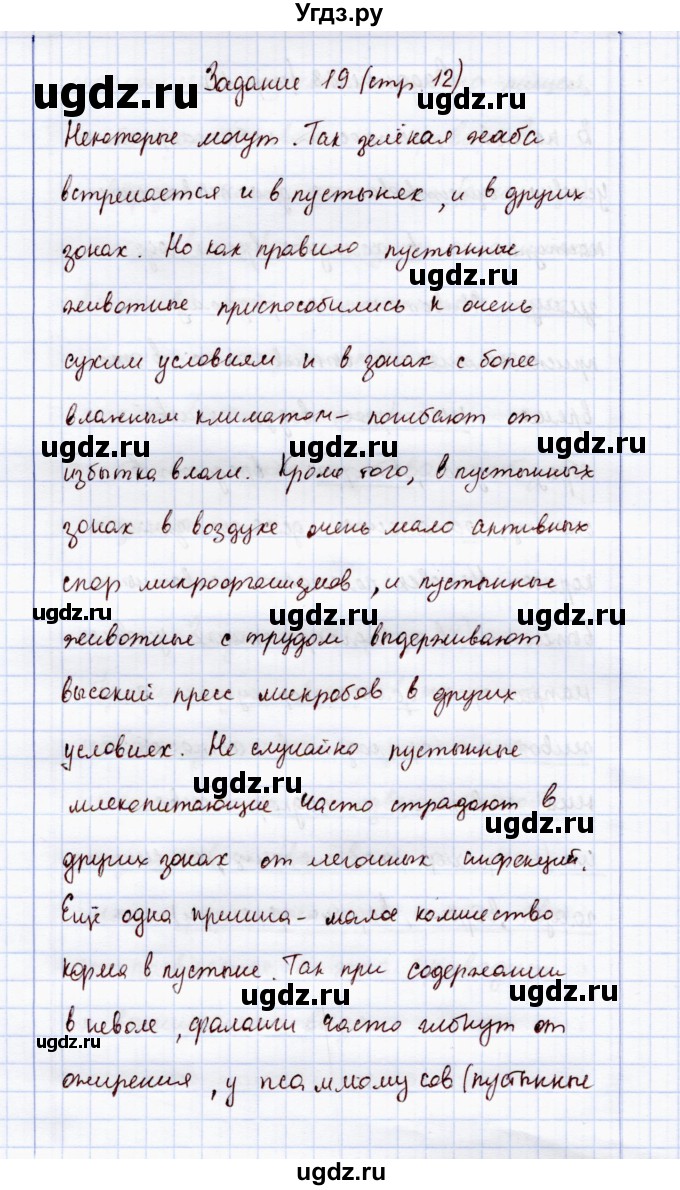 Угдз.ру
Задание 19 (стр 12)
ugdz.ru
Некоторые могут. Так зелёная жаба
встречается и в пустынях, и в других
зонах. Но как правило пустынные
ugdz.ru
животные приспособились к очень
сухим условиям и в зонах с более
влажным климатом - погибают от
ugdz.ru ugdz.ru ugdz.ru
избытка влаги. Кроме того, в пустынных
зонах в воздухе очень мало активных
спор микроорганизмов, и пустынные
ugdz.ru ugdz.ru ugdz.ru
животные с трудом выдерживают
высокий пресс микробов в других
условиях. Не случайно пустынные
ugdz.ru
млекопитающие часто страдают в
ugdz.ru
других зонах от легочных инфекций.
Ещё одна причина - малое количество
корма в пустыне. Так при содержании
ugdz.ru ugdz.ru
в неволе, фаланги часто гибнут от
ugdz.ru
ожирения, у псаммомусов (пустынные
ugdz.ru